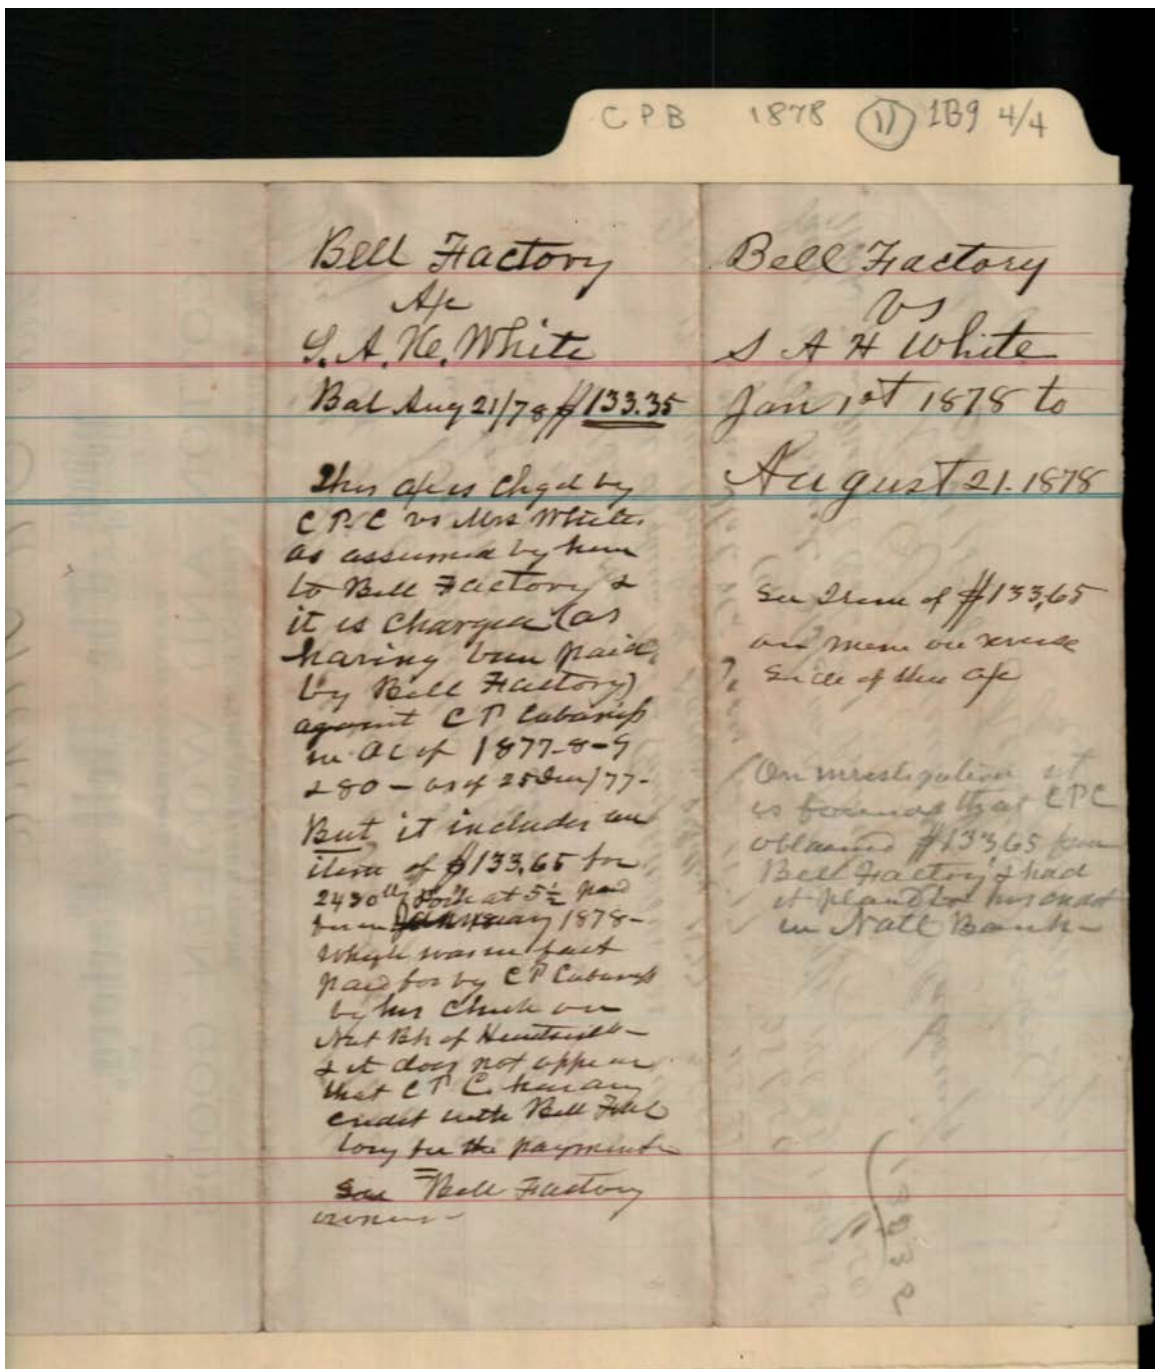 CPB 1878 (11) 1B9 4/4
Bell Factory
A/c
S. A. H. White
Bal Aug 21/78 $133.35
This a/c is chgd by
C P. C vs Mrs White.
as assumed by him
to Bell Factory &
it is charged (as
having been paid
by Bell Factory)
against C P Cabaniss
in Ac of 1877-8-9
& 80 - as of 25 Dec/77-
But it includes an
item of $133,65 for
2430 lb at 5½ paid
for in January 1878-
which was in fact
paid for by C P Cabaniss
by his check on
Nat Bk of Huntsville-
& it does not appear
that C P C. has any
credit with Bell Fac
tory for the payment
See Bell Factory
Bell Factory
vs
S A H White
Jan 1st 1878 to
August 21. 1878
See Item of $133,65
on mem on reverse
? side of this a/c
On investigation it
is found that CPC
obtained $133,65 from
Bell Factory & had
it placed to his credit
in Natl Bank-